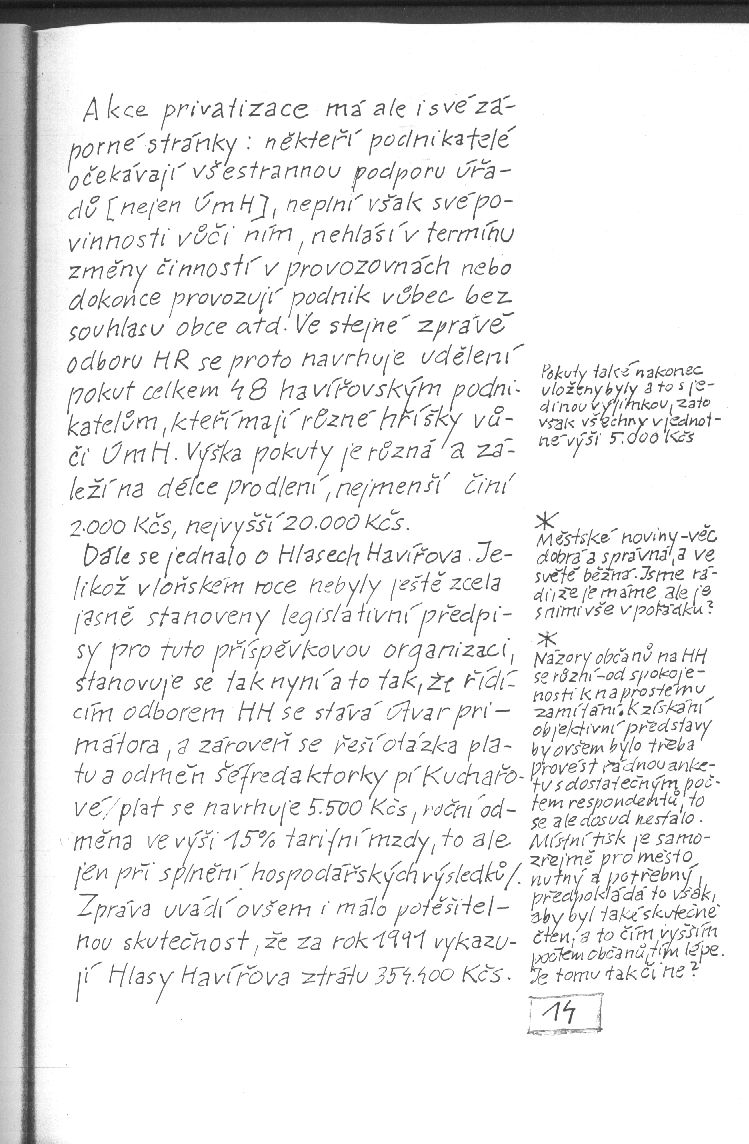 Akce privatizace má ale i své zá-
porné stránky: někteří podnikatelé
očekávají všestrannou podporu úřa-
dů [nejen ÚmH], neplní však své po-
vinnosti vůči ním, nehlásí v termínu
změny činností v provozovnách nebo
dokonce provozují podnik vůbec bez
souhlasu obce atd. Ve stejné zprávě
odboru HR se proto navrhuje udělení
pokut celkem 48 havířovským podni-
katelům, kteří mají různé hříšky vů-
či ÚmH. Výška pokuty je různá a zá-
leží na délce prodlení, nejmenší činí
2.000 Kčs, nejvyšší 20.000 Kčs.
Dále se jednalo o Hlasech Havířova. Je-
likož v loňském roce nebyly ještě zcela
jasně stanoveny legislativní předpi-
sy pro tuto příspěvkovou organizaci,
stanovuje se tak nyní a to tak, že řídí-
cím odborem HH se stává Útvar pri-
mátora, a zároveň se řeší otázka pla-
tu a odměn šéfredaktorky pí Kuchařo-
vé/plat se navrhuje 5.500 Kčs, roční od-
měna ve výši 15% tarifní mzdy, to ale
jen při splnění hospodářských výsledků/.
Zpráva uvádí ovšem i málo potěšitel-
nou skutečnost, že za rok 1991 vykazu-
jí Hlasy Havířova ztrátu 354.400 Kčs.
Pokuty také nakonec
uloženy byly a to s je-
dinou výjimkou, zato
však všechny v jednot-
né výši 5.000 Kčs
*
Městské noviny-věc
dobrá a správná, a ve
světě běžná. Jsme rá-
di, že je máme, ale je
s nimi vše v pořádku?
*
Názory občanů na HH
se různí-od spokoje-
nosti k naprostému
zamítání. K získání
objektivní představy
by ovšem bylo třeba
provést řádnou anke-
tu s dostatečným poč-
tem respondentů, to
se ale dosud nestalo.
Místní tisk je samo-
zřejmě pro město
nutný a potřebný,
předpokládá to však,
aby byl také skutečně
čten, a to čím vyšším
počtem občanů, tím lépe.
Je tomu tak či ne?
14